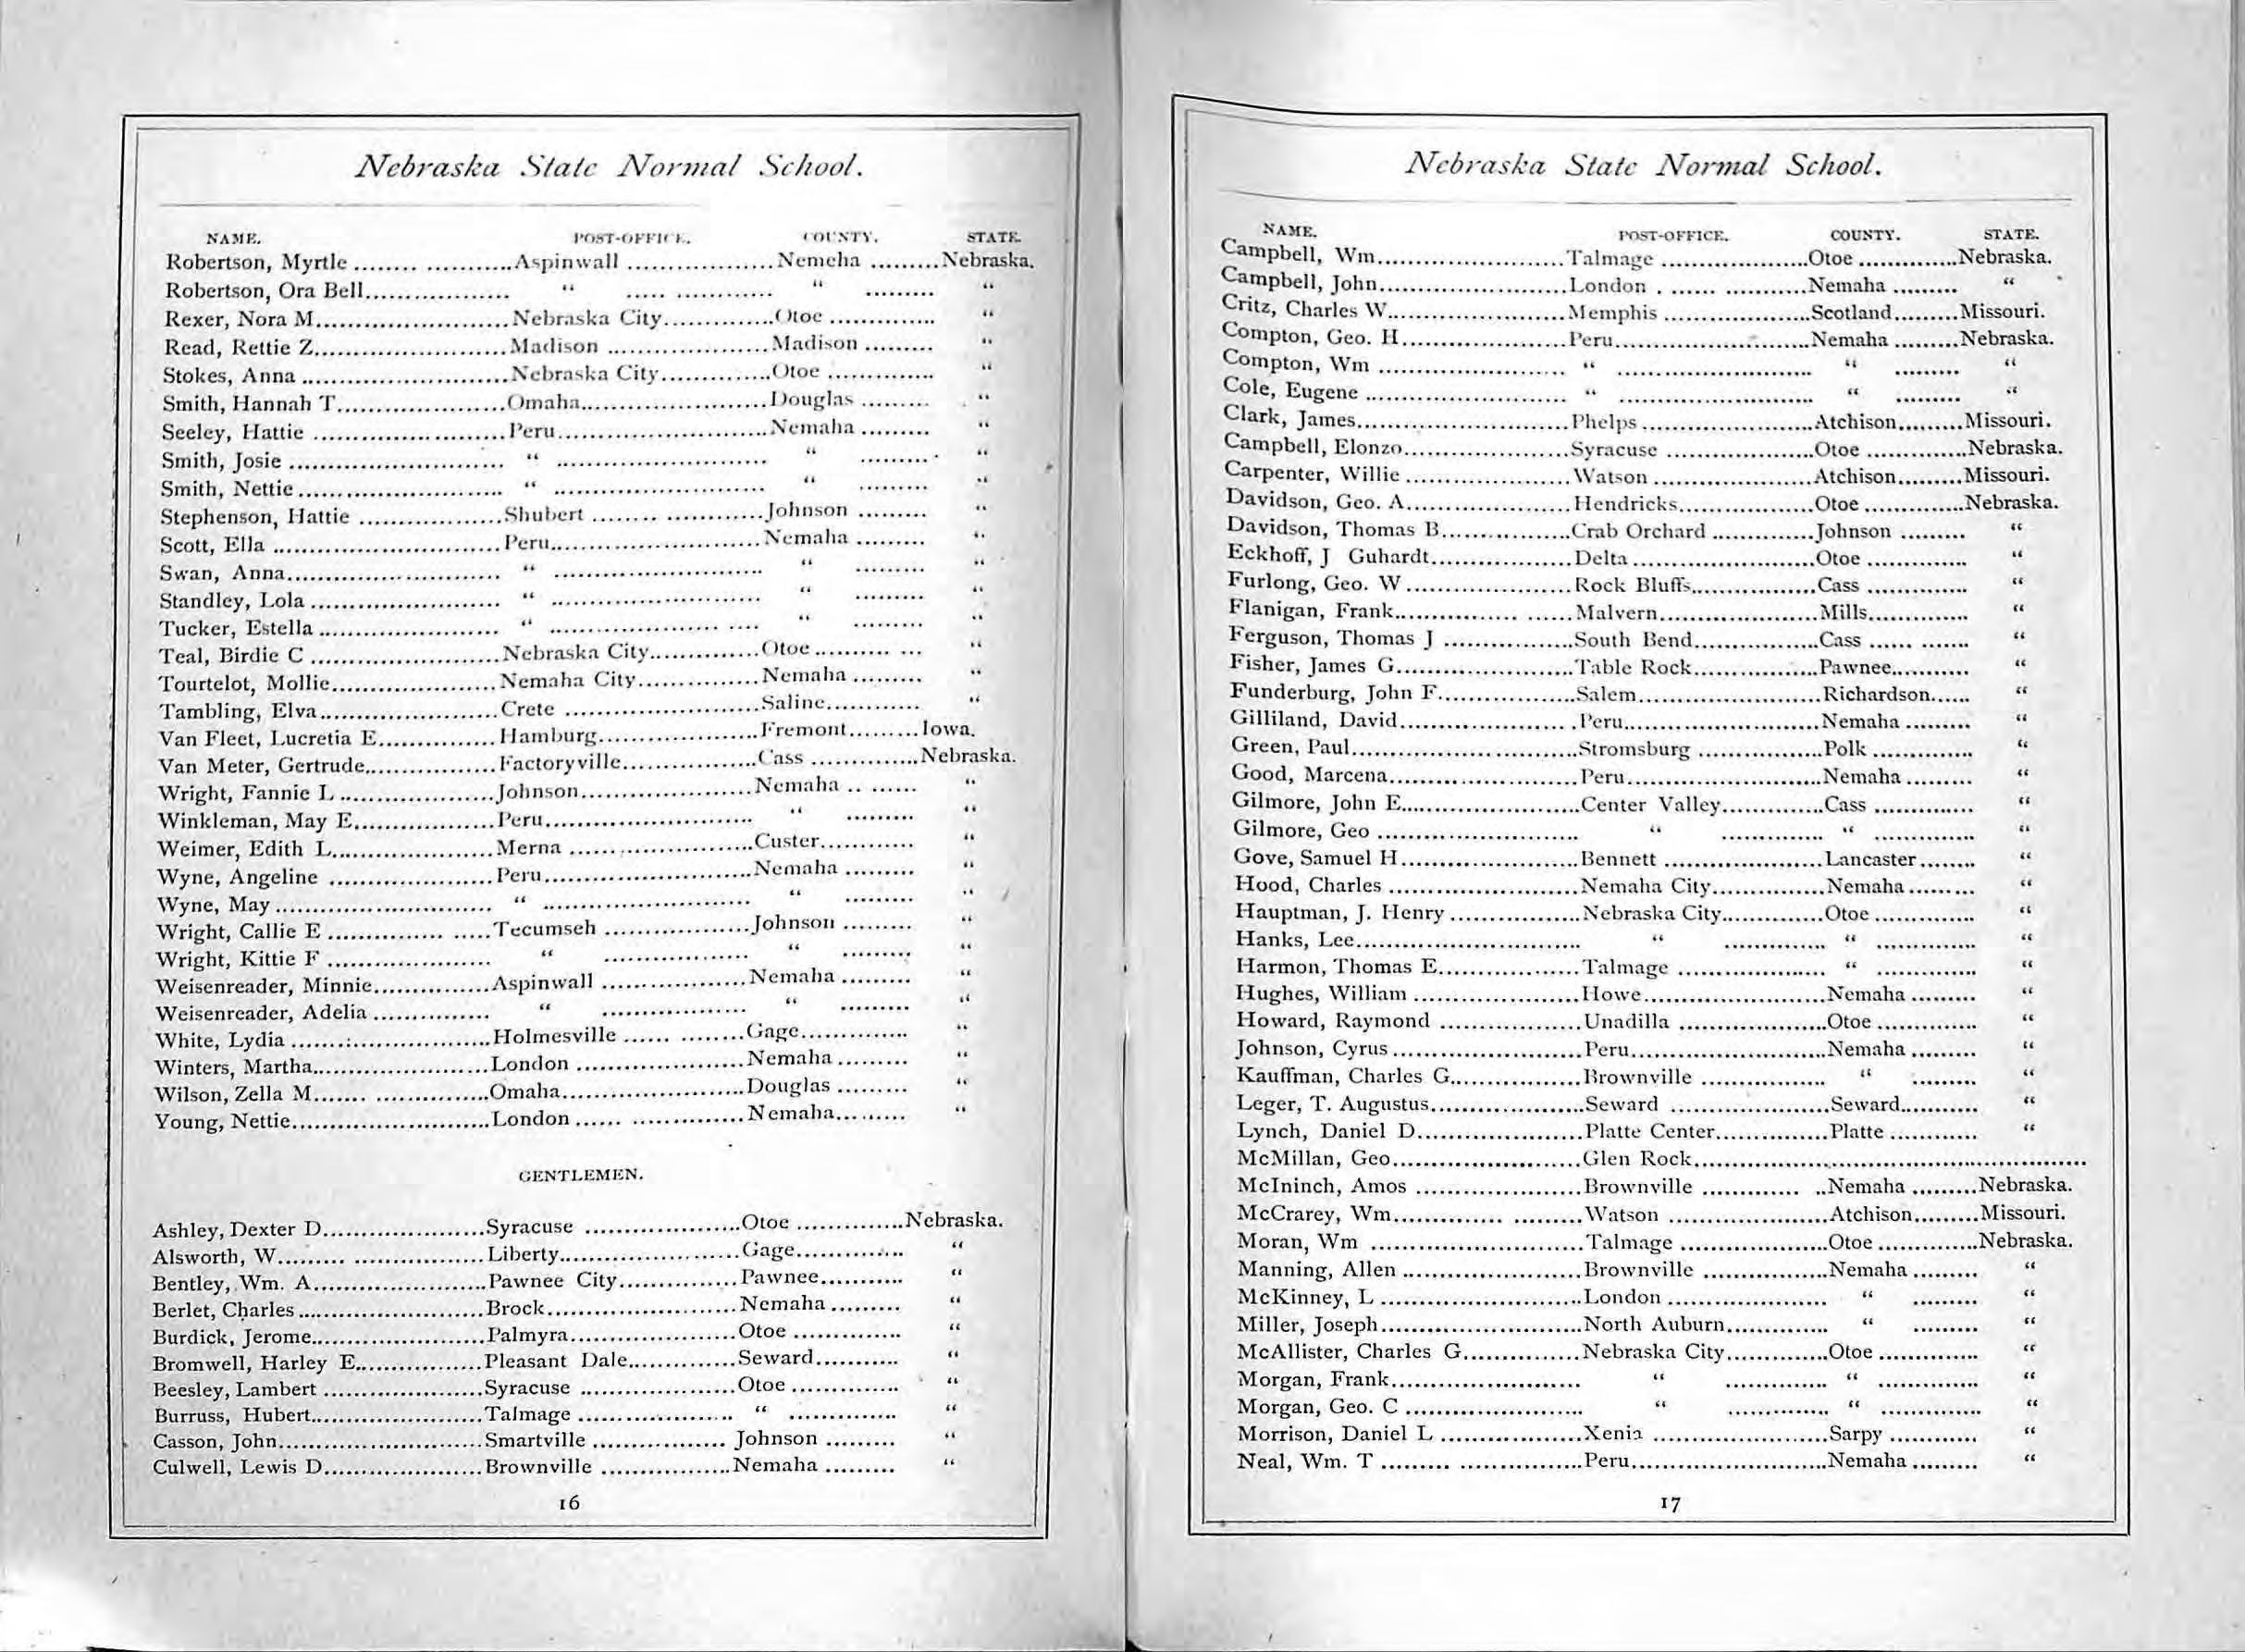 Nebraska State Normal School.
NAME. POST-OFFICE. COUNTY. STATE.
Robertson, Myrtle ........ ............Aspinwall ...................Nemeha .........Nebraska.
Robertson, Ora Bell................... “ ..... ............. “ ......... “
Rexer, Nora M..........................Nebraska City..............Otoe .............. “
Read, Rettie Z..........................Madison .....................Madison ......... “
Stokes, Anna ...........................Nebraska City..............Otoe .............. “
Smith, Hannah T......................Omaha........................Douglas ......... “
Seeley, Hattie ..........................Peru...........................Nemaha ......... “
Smith, Josie ............................ “ ........................... “ ......... “
Smith, Nettie........................... “ ........................... “ ......... “
Stephenson, Hattie ...................Shubert ........ .............Johnson ......... “
Scott, Ella ..............................Peru...........................Nemaha ......... “
Swan, Anna............................ “ ........................... “ ......... “
Standley, Lola ......................... “ ........................... “ ......... “
Tucker, Estella ........................ “ ...................... .... “ ......... “
Teal, Birdie C .........................Nebraska City..............Otoe .......... ... “
Tourtelot, Mollie......................Nemaha City................Nemaha ......... “
Tambling, Elva........................Crete .........................Saline............ “
Van Fleet, Lucretia E...............Hamburg.....................Fremont.........Iowa.
Van Meter, Gertrude.................Factoryville.................Cass .............Nebraska.
Wright, Fannie L ....................Johnson......................Nemaha .. ...... “
Winkleman, May E..................Peru........................... “ ......... “
Weimer, Edith L......................Merna ........................Custer............ “
Wyne, Angeline ......................Peru...........................Nemaha ......... “
Wyne, May ............................. “ ........................... “ ......... “
Wright, Callie E ............... .....Tecumseh ...................Johnson ......... “
Wright, Kittie F ...................... “ ................... “ ......... “
Weisenreader, Minnie...............Aspinwall ...................Nemaha ......... “
Weisenreader, Adelia ............... “ ................... “ ......... “
White, Lydia ...........................Holmesville ...... ........Gage.............. “
Winters, Martha.......................London ......................Nemaha ......... “
Wilson, Zella M....... ...............Omaha........................Douglas ......... “
Young, Nettie..........................London ...... ...............Nemaha.......... “
GENTLEMEN.
Ashley, Dexter D......................Syracuse .....................Otoe ..............Nebraska.
Alsworth, W......... .................Liberty........................Gage.............. “
Bentley, Wm. A.......................Pawnee City................Pawnee........... “
Berlet, Charles .........................Brock.........................Nemaha ......... “
Burdick, Jerome.......................Palmyra......................Otoe .............. “
Bromwell, Harley E.................Pleasant Dale..............Seward........... “
Beesley, Lambert .....................Syracuse .....................Otoe .............. “
Burruss, Hubert.......................Talmage ..................... “ .............. “
Casson, John...........................Smartville .................. Johnson ......... “
Culwell, Lewis D.....................Brownville .................Nemaha ......... “
16
Nebraska State Normal School.
NAME. POST-OFFICE. COUNTY. STATE.
Campbell, Wm.........................Talmage ....................Otoe .............Nebraska.
Campbell, John.........................London . ...... ...........Nemaha ......... “
Critz, Charles W.......................Memphis ...................Scotland.........Missouri.
Compton, Geo. H......................Peru..........................Nemaha .........Nebraska.
Compton, Wm ......................... “ .......................... “ ......... “
Cole, Eugene ........................... “ .......................... “ ......... “
Clark, James............................Phelps .......................Atchison.........Missouri.
Campbell, Elonzo......................Syracuse ....................Otoe ..............Nebraska.
Carpenter, Willie ......................Watson .....................Atchison.........Missouri.
Davidson, Geo. A......................Hendricks...................Otoe ..............Nebraska.
Davidson, Thomas B.................Crab Orchard ..............Johnson ......... “
Eckhoff, J Guhardt...................Delta .........................Otoe .............. “
Furlong, Geo. W ......................Rock Bluffs.................Cass .............. “
Flanigan, Frank.............. .......Malvern......................Mills.............. “
Ferguson, Thomas J .................South Bend.................Cass ...... ....... “
Fisher, James G........................Table Rock.................Pawnee........... “
Funderburg, John F..................Salem.........................Richardson...... “
Gilliland, David...................... .Peru..........................Nemaha ......... “
Green, Paul..............................Stromsburg .................Polk .............. “
Good, Marcena.........................Peru..........................Nemaha ......... “
Gilmore, John E........................Center Valley..............Cass .............. “
Gilmore, Geo ........................... “ .............. “ .............. “
Gove, Samuel H........................Bennett ......................Lancaster........ “
Hood, Charles ..........................Nemaha City...............Nemaha ......... “
Hauptman, J. Henry ..................Nebraska City..............Otoe .............. “
Hanks, Lee............................... “ .............. “ .............. “
Harmon, Thomas E...................Talmage .................... “ .............. “
Hughes, William ......................Howe.........................Nemaha ......... “
Howard, Raymond ...................Unadilla ....................Otoe .............. “
Johnson, Cyrus .........................Peru..........................Nemaha ......... “
Kauffman, Charles G.................Brownville ................. “ ......... “
Leger, T. Augustus.....................Seward ......................Seward........... “
Lynch, Daniel D.......................Platte Center................Platte ............ “
McMillan, Geo..........................Glen Rock..................................................
McIninch, Amos ......................Brownville ............. ..Nemaha .........Nebraska.
McCrarey, Wm.............. .........Watson ......................Atchison.........Missouri.
Moran, Wm ............................Talmage ....................Otoe ..............Nebraska.
Manning, Allen ........................Brownville .................Nemaha ......... “
McKinney, L ...........................London ..................... “ ......... “
Miller, Joseph...........................North Auburn.............. “ ......... “
McAllister, Charles G................Nebraska City..............Otoe .............. “
Morgan, Frank.......................... “ .............. “ .............. “
Morgan, Geo. C ........................ “ .............. “ .............. “
Morrison, Daniel L ...................Xenia ........................Sarpy ............ “
Neal, Wm. T ......... .................Peru..........................Nemaha ......... “
17